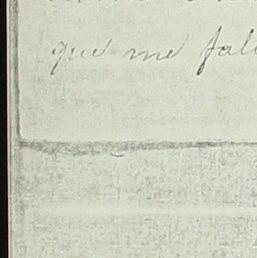 que me fal